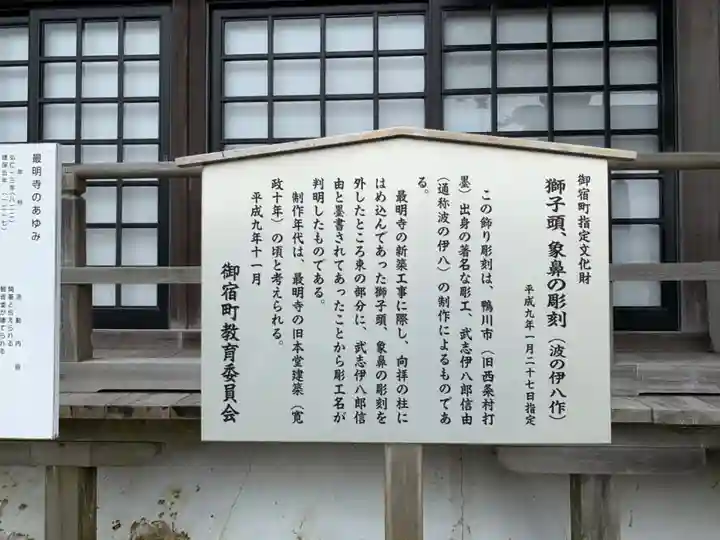 御宿町指定文化財
獅子頭、象鼻の彫刻（波の伊八作）
平成九年一月二十七日指定
この飾り彫刻は、鴨川市（旧西条村打
墨）出身の著名な彫工、武志伊八郎信由
（通称波の伊八）の制作によるものであ
る。
最明寺の新築工事に際し、向拝の柱に
はめ込んであった獅子頭、象鼻の彫刻を
外したところ東の部分に、武志伊八郎信
由と墨書されてあったことから彫工名が
判明したものである。
制作年代は、最明寺の旧本堂建築（寛
政十年）の頃と考えられる。
平成九年十一月
御宿町教育委員会
最明寺のあゆみ
年号
活動内容